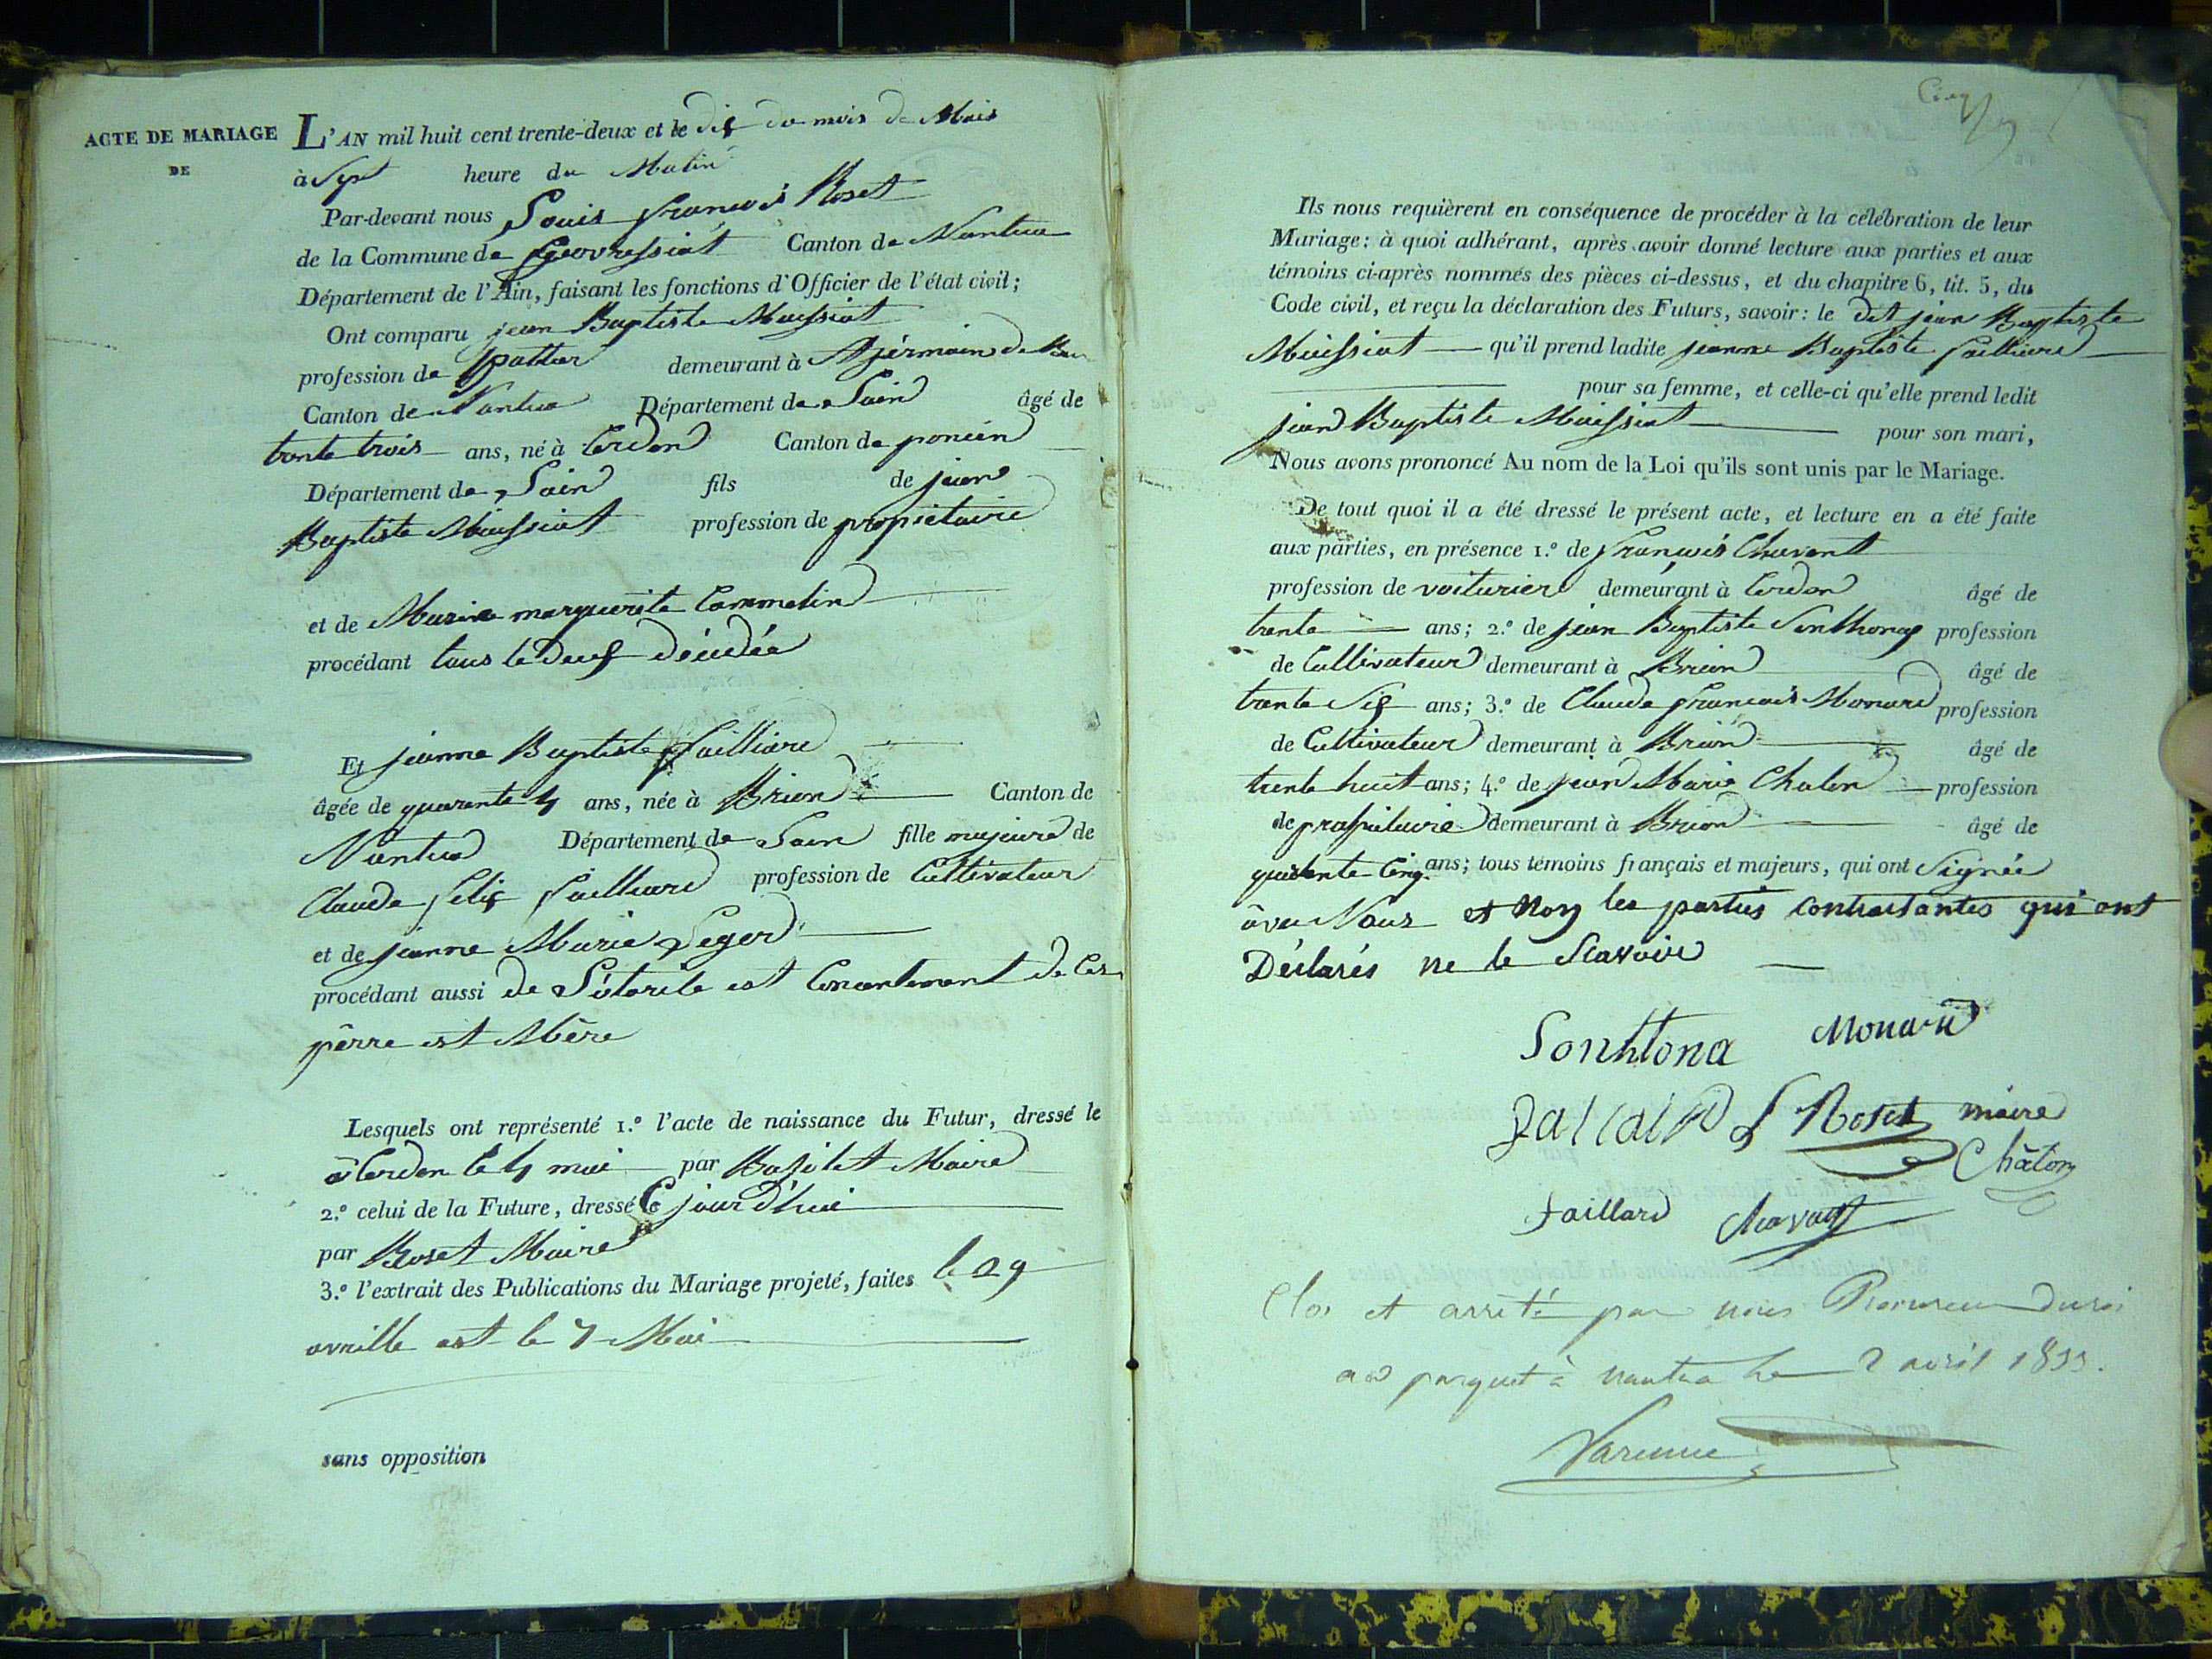 ACTE DE MARIAGE
DE
L'AN mil huit cent trente-deux et le dix du mois de Mais
à Sept heure du Matin
Par-devant nous Louis françois Roset
de la Commune de Geovressiat Canton de Nantua
Département de l'Ain, faisant les fonctions d'Officier de l'état civil;
Ont comparu jean Baptiste Maissiat
profession de demeurant à St jermain de
Canton de Nantua Département de Lain âgé de
trente trois ans, né à Cerdon Canton de poncin
Département de Lain fils de jean
Baptiste Maissiat profession de propiétaire
et de Marie marguerite Cammelin
procédant tous le deux décédée
Et jeanne Baptiste failliard
âgée de quarente 4 ans, née à Brion Canton de
Nantua Département de Lain fille majeure de
Claude felix faillard profession de Cultivateur
et de jeanne Marie Leger
procédant aussi de L'otorite est Consentement de Ces
pêrre est Mêre
Lesquels ont représenté 1.º l'acte de naissance du Futur, dressé le
à Cerdon le 4 mai par Maire
2.º celui de la Future, dressé Ce jour d'hui
par Roset Maire
3.º l'extrait des Publications du Mariage projeté, faites le 29
avrille est le 7 Mai
sans opposition
Cinq
Ils nous requièrent en conséquence de procéder à la célébration de leur
Mariage: à quoi adhérant, après avoir donné lecture aux parties et aux
témoins ci-après nommés des pièces ci-dessus, et du chapitre 6, tit. 5, du
Code civil, et reçu la déclaration des Futurs, savoir: le dit jean Baptiste
Maissiat qu'il prend ladite jeanne Baptiste failliard
pour sa femme, et celle-ci qu'elle prend ledit
jean Baptiste Maissiat pour son mari,
Nous avons prononcé Au nom de la Loi qu'ils sont unis par le Mariage.
De tout quoi il a été dressé le présent acte, et lecture en a été faite
aux parties, en présence 1.º de françois Chavent
profession de voiturier demeurant à Cerdon âgé de
trente ans; 2.º de jean Baptiste Sonthonax profession
de Cultivateur demeurant à Brion âgé de
trente Six ans; 3.º de Claude françois Monard profession
de Cultivateur demeurant à Brion âgé de
trente huit ans; 4.º de jean Marie Chaton profession
de demeurant à Brion âgé de
quarente Cinq ans; tous témoins français et majeurs, qui ont Signée
àvec Nous et Non les parties contractantes qui ont
Déclarés ne le Scavoire
Sonhtona Monard
L f Roset maire
Châton
faillard
Clos et arrêté par nous Procureur du roi
au parquet à nantua le 2 avril 1833.
Varenne